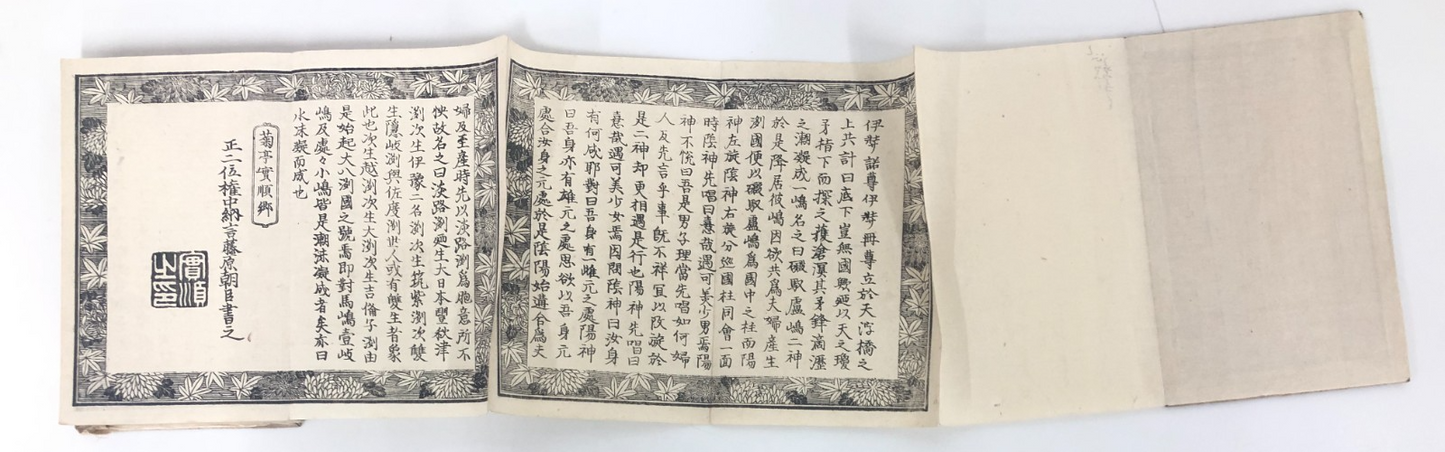 伊弉諾尊伊弉冊尊立於天浮橋之
上共計曰底下豈無國歟廼以天之瓊
矛指下而探之獲滄溟其矛鋒滴瀝
之潮凝成一嶋名之曰磤馭盧嶋二神
於是降居彼嶋因欲共爲夫婦產生
洲國便以磤馭盧嶋爲國中之柱而陽
神左旋陰神右旋分巡國柱同會一面
時陰神先唱曰憙哉遇可美少男焉陽
神不悅曰吾是男子理當先唱如何婦
人反先言乎事既不祥宜以改旋於
是二神却更相遇是行也陽神先唱曰
憙哉遇可美少女焉因問陰神曰汝身
有何成耶對曰吾身有一雌元之處陽神
曰吾身亦有雄元之處思欲以吾身元
處合汝身之元處於是陰陽始遘合爲夫
婦及至產時先以淡路洲爲胞意所不
快故名之曰淡路洲廼生大日本豐秋津
洲次生伊豫二名洲次生筑紫洲次雙
生隱岐洲與佐度洲世人或有雙生者象
此也次生越洲次生大洲次生吉備子洲由
是始起大八洲國之號焉即對馬嶋壹岐
嶋及處々小嶋皆是潮沫凝成者矣亦曰
水沫凝而成也
菊亭實順卿
正二位權中納言藤原朝臣書之
實順
之印